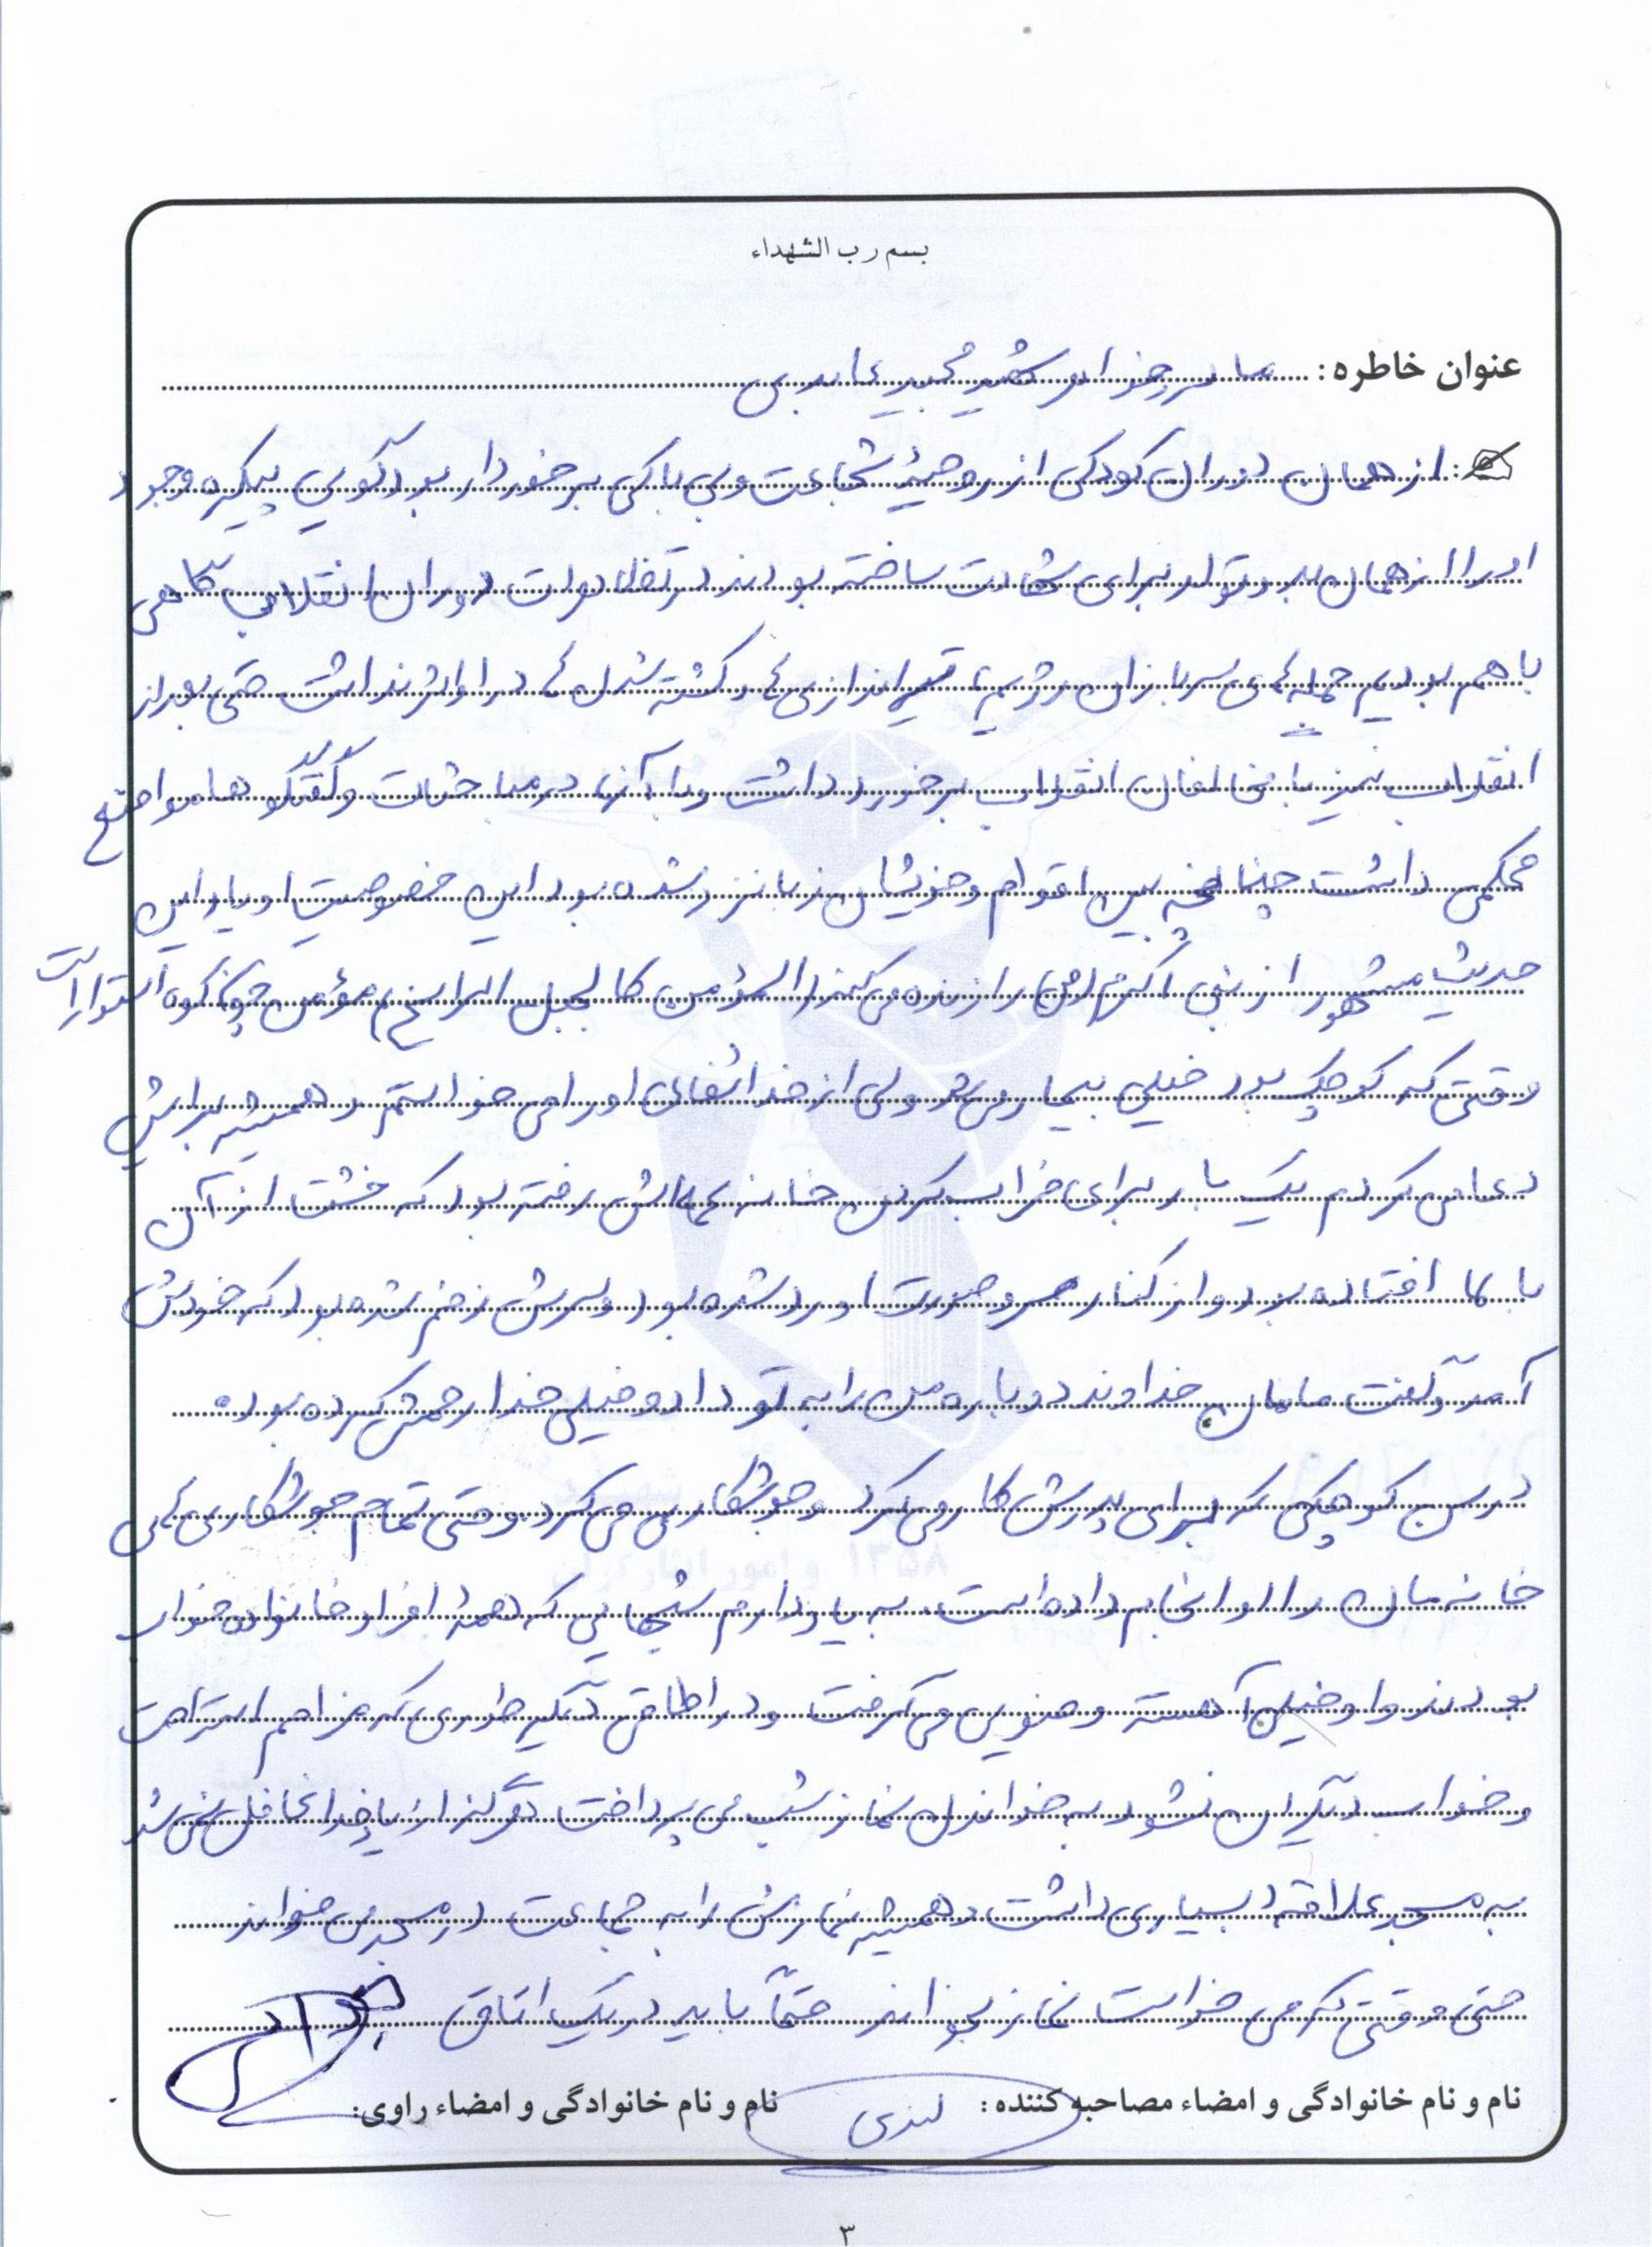 بسم رب الشهداء
عنوان خاطره: مادر و خواهر شهید مجید عابدی
از همان دوران کودکی از روحیهٔ شجاعت و بی باکی برخوردار بود گویی پیکره وجود
او را از همان بدو تولد برای شهادت ساخته بودند در تظاهرات دوران انقلاب گاهی
با هم بودیم حمله‌های سربازان رژیم، تیراندازی‌ها و کشته شدن‌ها در او اثر نداشت حتی بعد از
انقلاب نیز با مخالفان انقلاب برخورد داشت و با آنها در مباحثات و گفتگوها مواضع
محکمی داشت چنانچه بین اقوام و خویشان زبانزد شده بود این خصوصیت او یاد این
حدیث مشهور از نبی اکرم (ص) را زنده می‌کند (المؤمن کالجبل الراسخ) مؤمن چونان کوه استوار است
وقتی که کوچک بود خیلی بیمار می‌شد ولی از خدا شفای او را می خواستم و همیشه برایش
دعا می کردم یک بار برای خراب کردن خانه عمه‌اش رفته بود که خشت از آن
بالا افتاده بود و از کنار سر و صورت او رد شده بود و سرش زخم شده بود که خودش
آمد و گفت مامان خداوند دوباره من را به تو داد و خیلی خدا رحمش کرده بوده
در سن کوچکی که برای پدرش کار می‌کرد و جوشکاری می کرد و حتی تمام جوشکاری‌های
خانه‌مان را او انجام داده است. به یاد دارم شبهایی که همهٔ افراد خانواده خواب
بودند و او خیلی آهسته وضویی می گرفت و در اطاقی دیگر طوری که مزاحم استراحت
و خواب دیگران نشود به خواندن نماز شب می پرداخت هرگز از یاد خدا غافل نمی شد
به مسجد علاقهٔ بسیاری داشت و همیشه نمازش را به جماعت در مسجد می خواند
حتی وقتی که می خواست نماز بخواند حتماً باید در یک اتاق
نام و نام خانوادگی و امضاء مصاحبه کننده: نام و نام خانوادگی و امضاء راوی:
۳